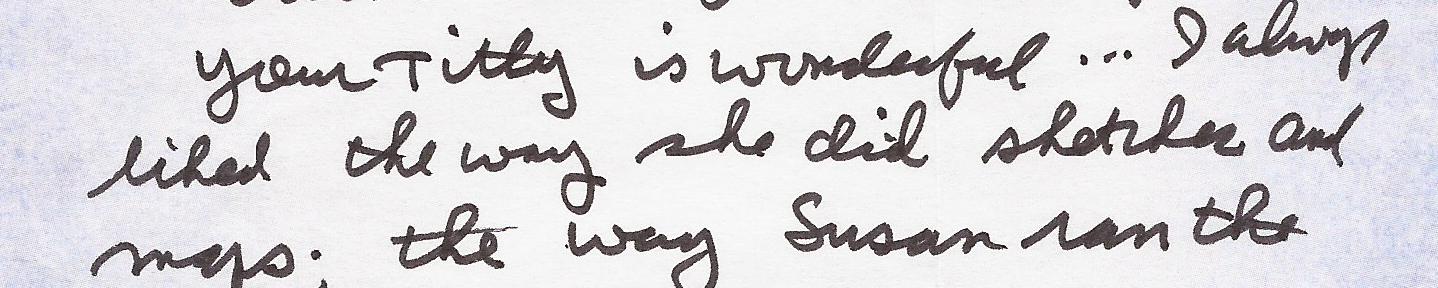 your Titty is wonderful ... I always
liked the way she did sketches and
maps; the way Susan ran the